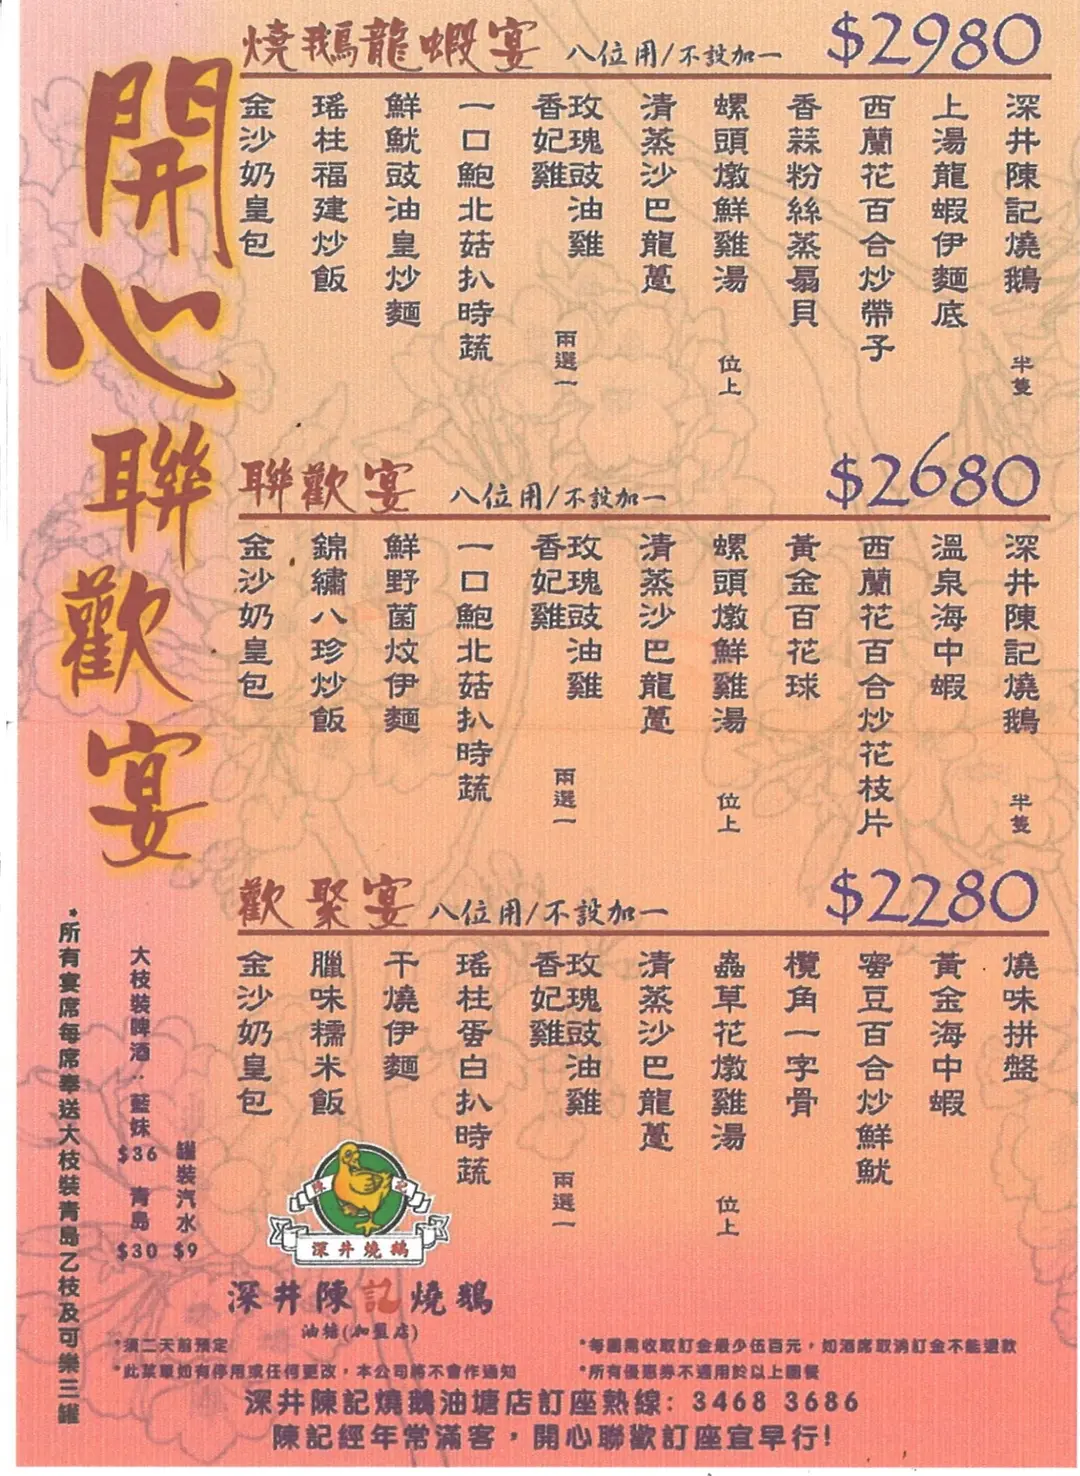 開心聯歡宴
燒鵝龍蝦宴 八位用/不設加一 $2980
深井陳記燒鵝 半隻
上湯龍蝦伊麵底
西蘭花百合炒帶子
香蒜粉絲蒸扇貝
螺頭燉鮮雞湯 位上
清蒸沙巴龍躉
玫瑰豉油雞
香妃雞
兩選一
一口鮑北菇扒時蔬
鮮魷豉油皇炒麵
瑤柱福建炒飯
金沙奶皇包
聯歡宴 八位用/不設加一 $2680
深井陳記燒鵝 半隻
溫泉海中蝦
西蘭花百合炒花枝片
黃金百花球
螺頭燉鮮雞湯 位上
清蒸沙巴龍躉
玫瑰豉油雞
香妃雞
兩選一
一口鮑北菇扒時蔬
鮮野菌炆伊麵
錦繡八珍炒飯
金沙奶皇包
歡聚宴 八位用/不設加一 $2280
燒味拼盤
黃金海中蝦
蜜豆百合炒鮮魷
欖角一字骨
蟲草花燉雞湯 位上
清蒸沙巴龍躉
玫瑰豉油雞
香妃雞
兩選一
瑤柱蛋白扒時蔬
干燒伊麵
臘味糯米飯
金沙奶皇包
罐裝汽水 $9
大枝裝啤酒：藍妹 $36 青島 $30
*所有宴席每席奉送大枝裝青島乙枝及可樂三罐
陳記
深井燒鵝
深井陳記燒鵝
油塘(加盟店)
*須二天前預定
*此菜單如有停用或任何更改，本公司將不會作通知
*每圍需收取訂金最少伍百元，如酒席取消訂金不能退款
*所有優惠券不適用於以上圍餐
深井陳記燒鵝油塘店訂座熱線: 3468 3686
陳記經年常滿客，開心聯歡訂座宜早行!